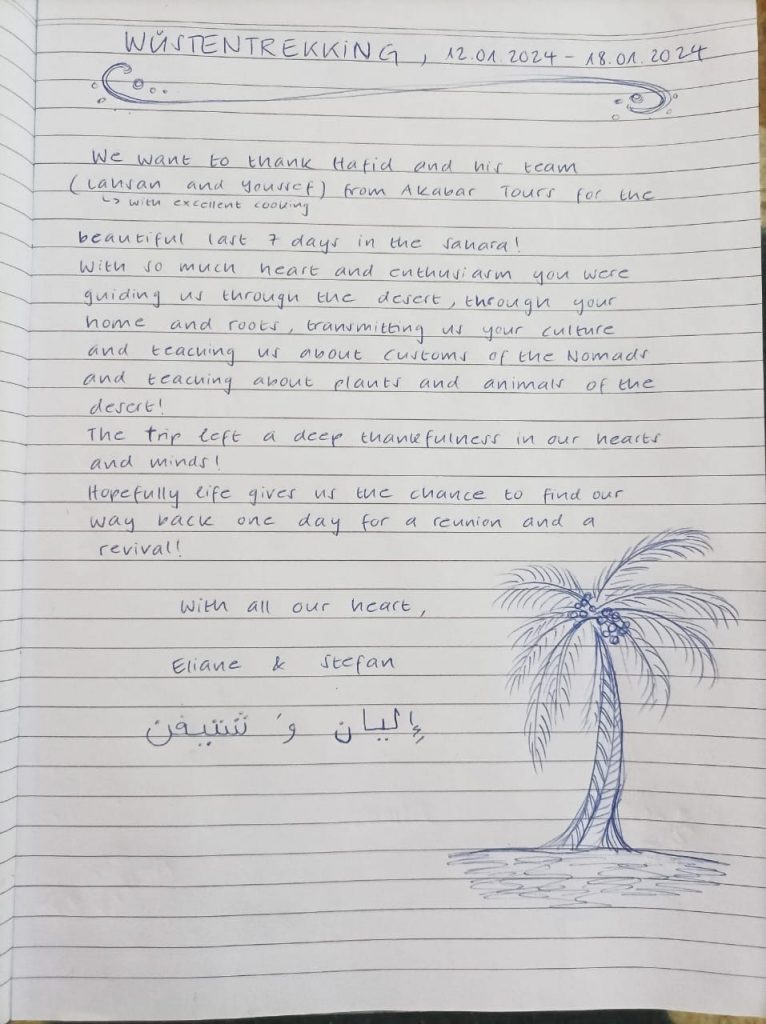 WÜSTENTREKKING, 12.01.2024 - 18.01.2024
We want to thank Hafid and his team
(Lahsan and Youssef) from Akabar Tours for the
↳ with excellent cooking
beautiful last 7 days in the sahara!
With so much heart and enthusiasm you were
guiding us through the desert, through your
home and roots, transmitting us your culture
and teaching us about customs of the Nomads
and teaching about plants and animals of the
desert!
The trip left a deep thankfulness in our hearts
and minds!
Hopefully life gives us the chance to find our
way back one day for a reunion and a
revival!
With all our heart,
Eliane & Stefan
إليان وَ شتيفن